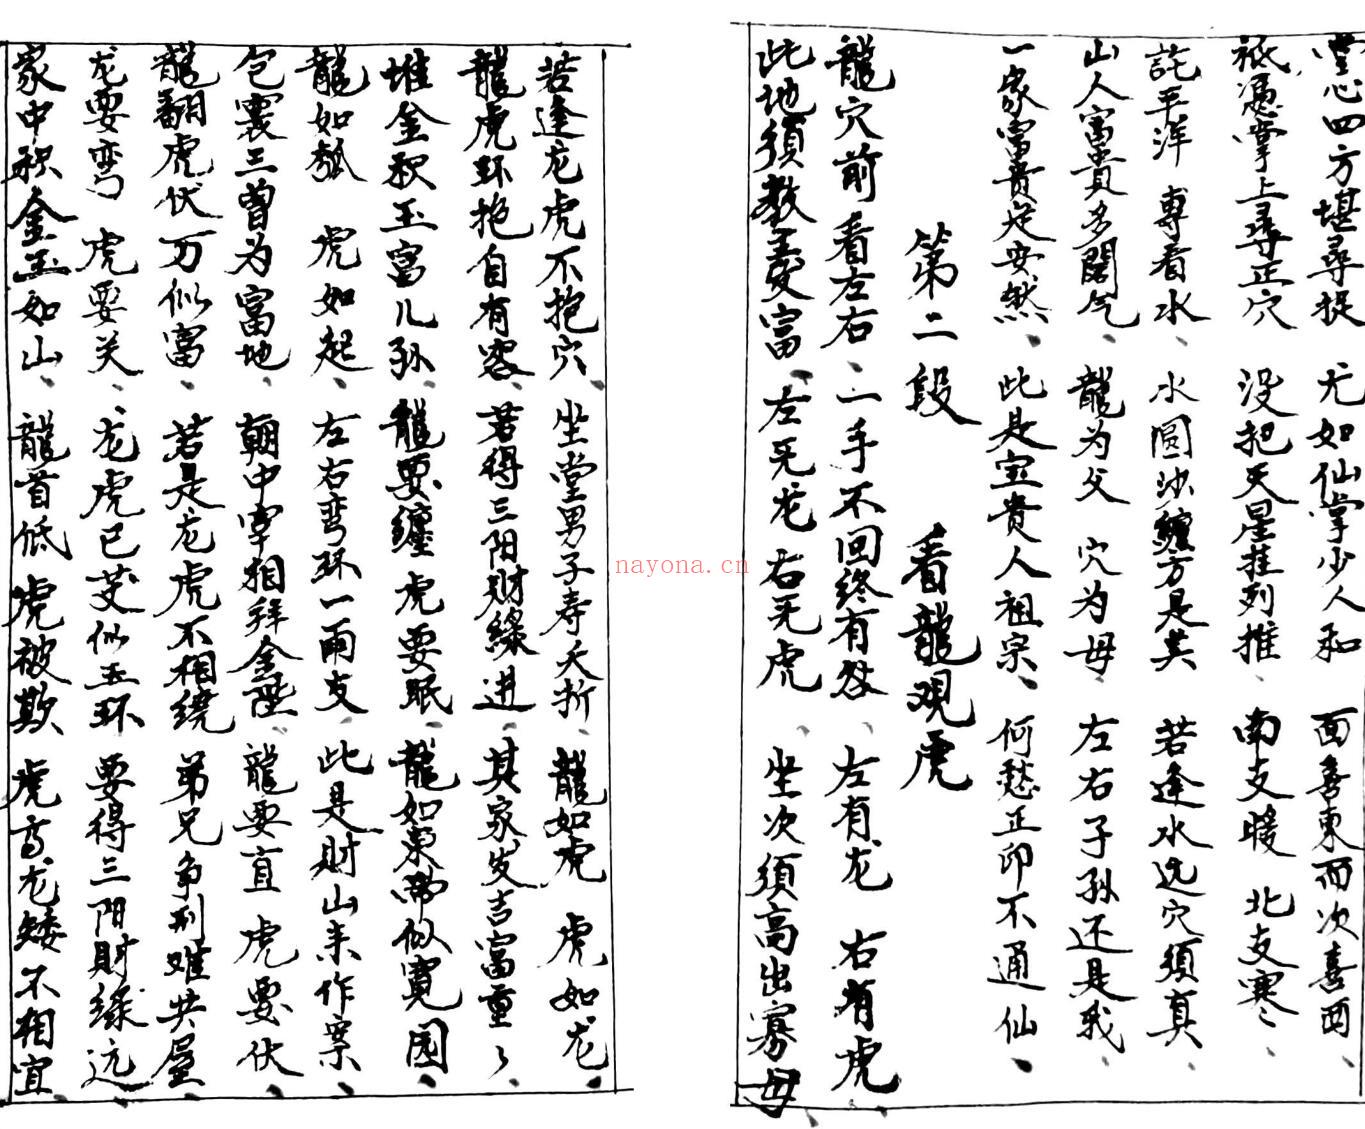 堂心四方堪尋捉 无如仙掌少人和 面喜東而次喜西
祇憑掌上尋正穴 没把天星挂列推 南支暖 北支寒
託平洋 專看水 水圓沙纏方是美 若逢水远穴須真
山人富貴多閙气 龍为父 穴为母 左右子孙还是我
一家富貴定安然 此是宝贵人祖宗 何愁正印不通仙
第二段 看龍观虎
龍穴前看左右 一手不回终有 左有龙 右有虎
此地須教妻富 左无龙 右无虎 坐次須高出寡母
若逢龙虎不抱穴 坐堂男子寿夭折 龍如虎 虎如龙
龍虎环抱自有容 若得三阳财緣进 其家发吉富重々
堆金积玉富儿孙 龍要纏 虎要眠 龍如束帶似寬园
龍如瓠 虎如起 左右弯环一兩支 此是財山来作案
包裹三曾为富地 朝中宰相拜金陛 龍要直 虎要伏
龍翻虎伏万似富 若是龙虎不相绕 弟兄争刑难共屋
龙要弯 虎要关 龙虎已交似玉环 要得三阳財緣远
家中积金玉如山 龍首低 虎被欺 虎高龙矮不相宜
nayona.cn